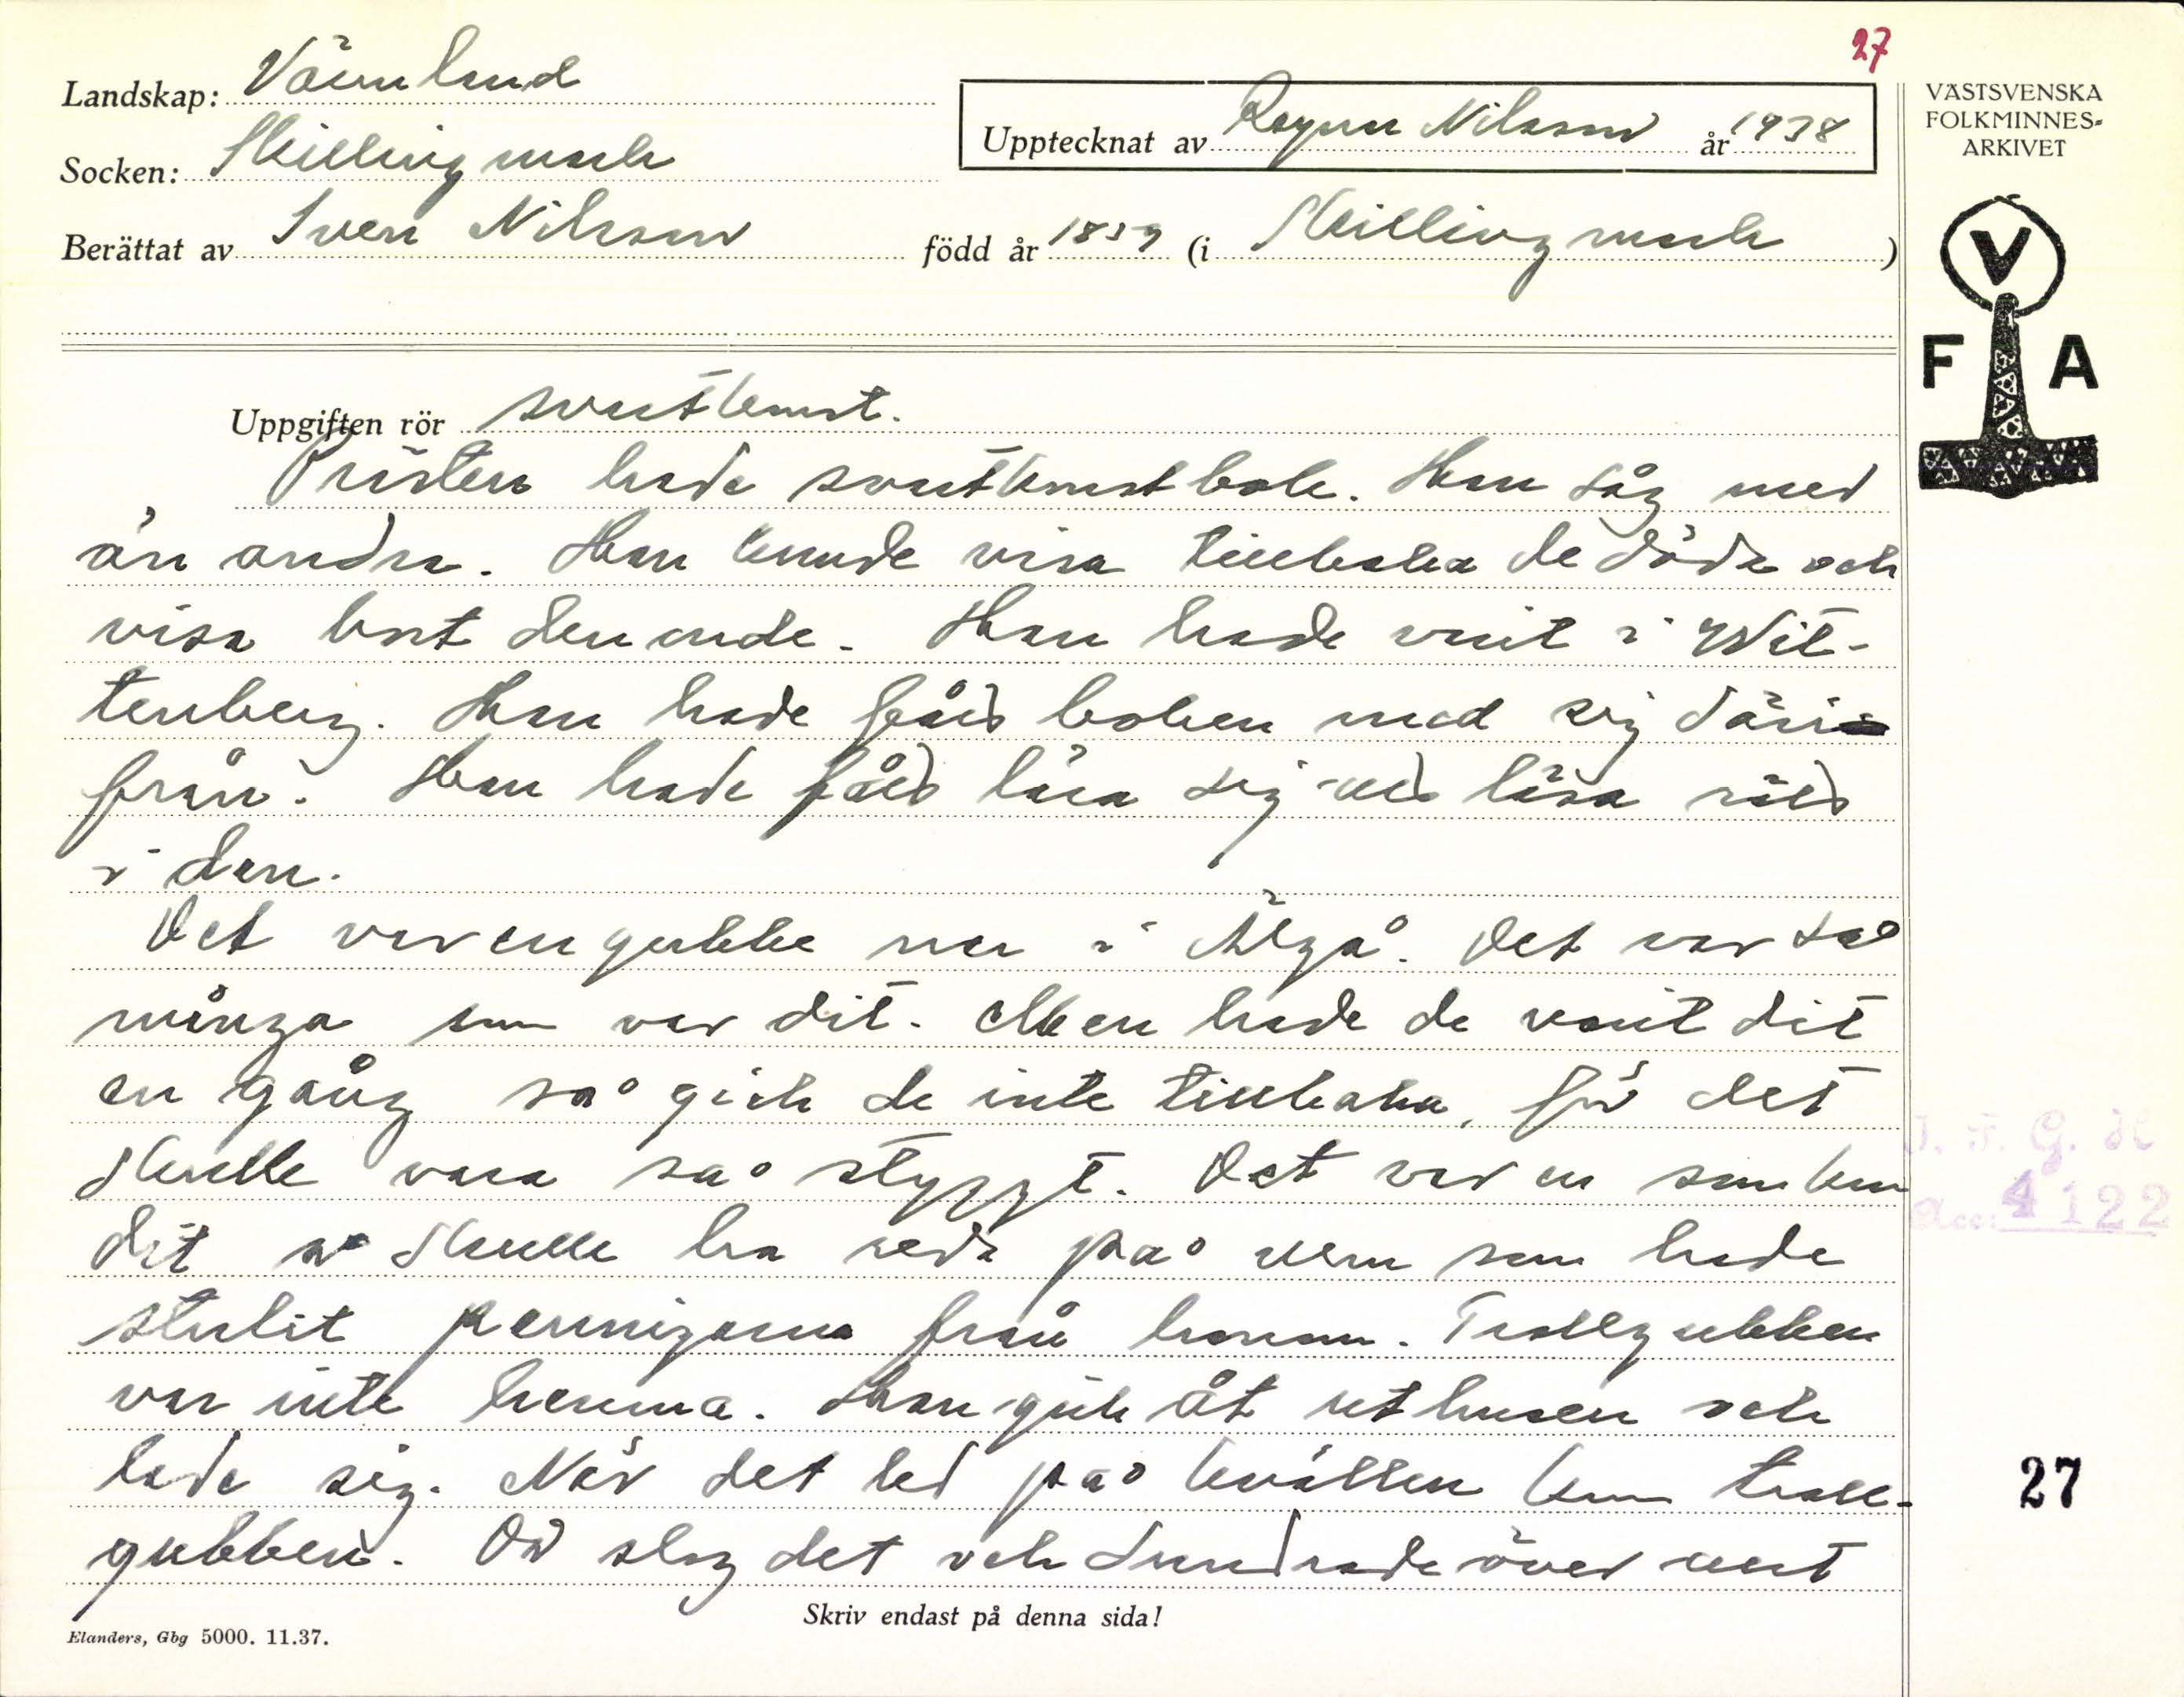 27
Landskap: Värmland
Socken: Skillingmark
Upptecknat av Ragnar Nilsson år 1938
Berättat av Sven Nilsson född år 1859 (i Skillingmark)
VÄSTSVENSKA
FOLKMINNES-
ARKIVET
V
F A
Uppgiften rör svartkonst.
Prästen hade svartkonstbok. Han såg mer
än andra. Han kunde visa tillbaka de döda och
visa bort den onde. Han hade varit i Wit-
tenberg. Han hade fått boken med sig däri
från. Han hade fått lära sig att läsa rätt
i den.
Det var en gubbe ner i Älgå. Det var så
många som var dit. Men hade de varit dit
en gång så gick de inte tillbaka, för det
skulle vara så styggt. Det var en som kom
dit å skulle ha reda på vem som hade
stulit pennigarna från honom. Trollgubben
var inte hemma. Han gick åt uthusen och
lade sig. När det led på kvällen kom troll-
gubben. Då slog det och dundrade över allt
I. F. G. H
Acc. 4122
27
Skriv endast på denna sida!
Elanders, Gbg 5000. 11.37.